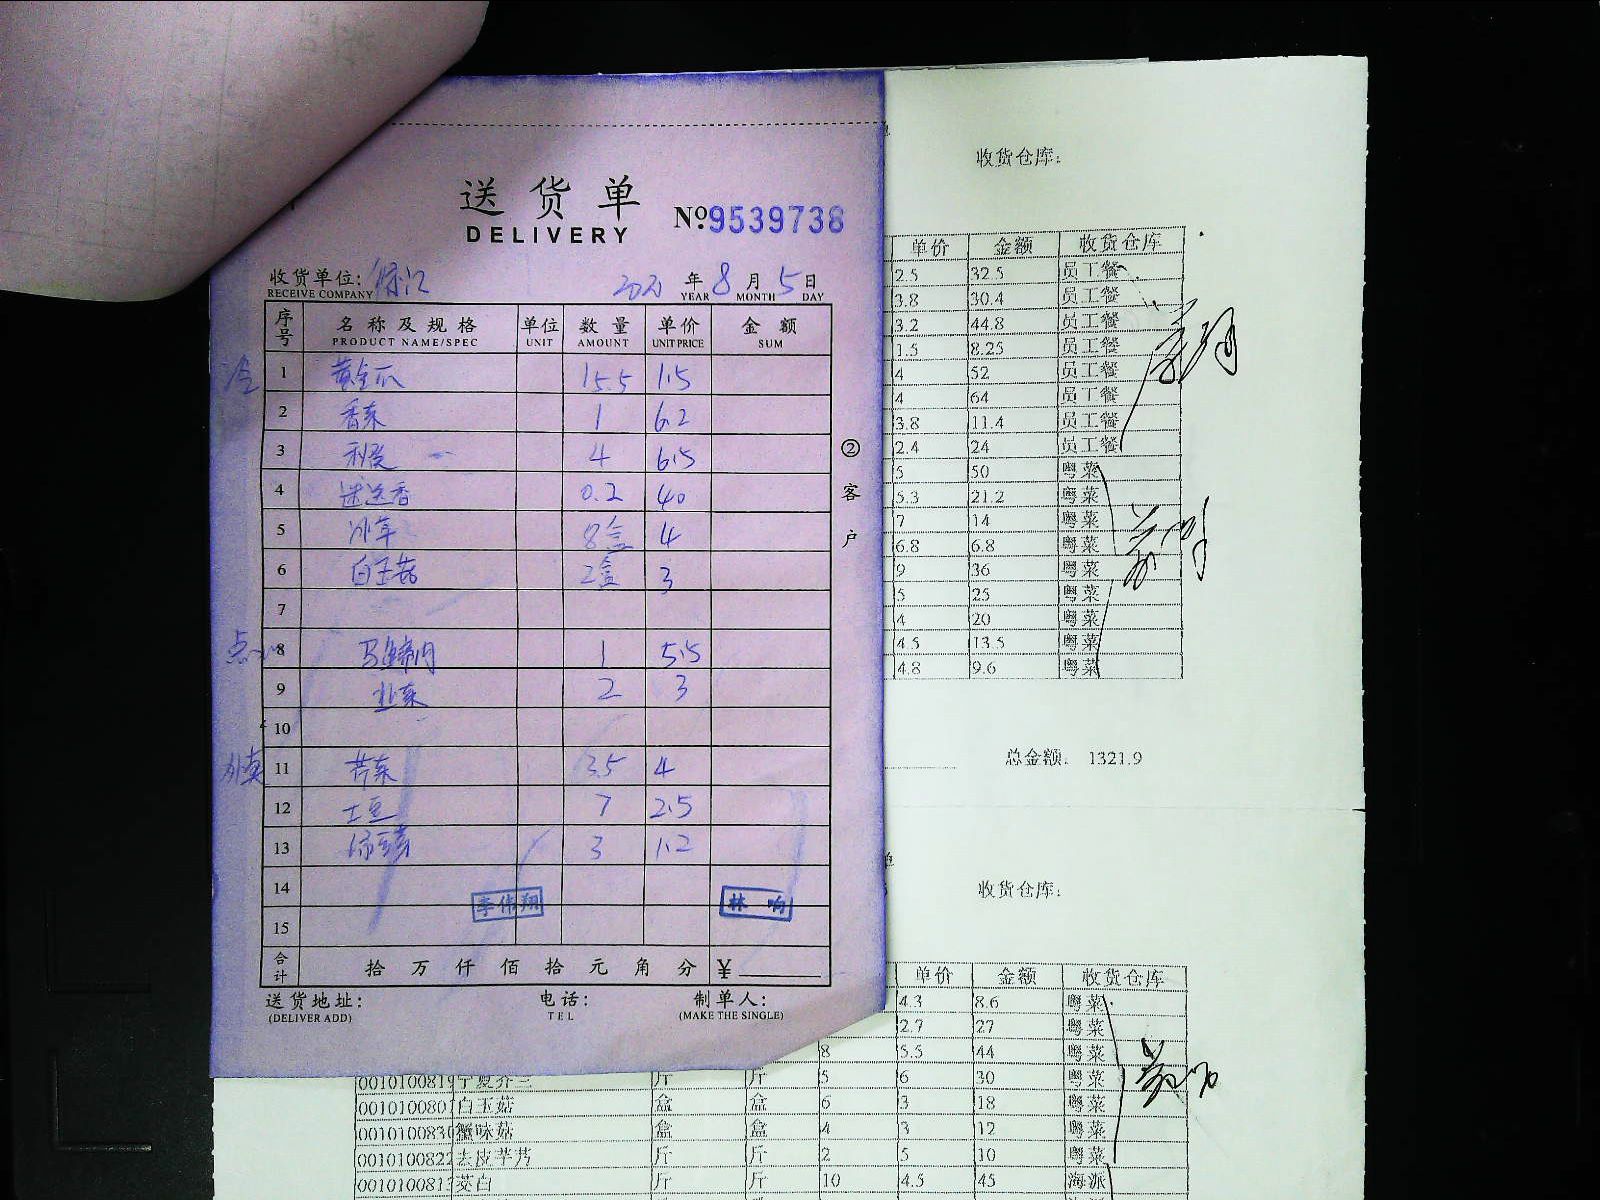 送货单
DELIVERY
Nº:9539738
收货单位:
RECEIVE COMPANY
年 8 月 5 日
YEAR MONTH DAY
序号 名称及规格 单位 数量 单价 金额
PRODUCT NAME/SPEC UNIT AMOUNT UNIT PRICE SUM
1 黄金瓜 15.5 1.5
2 香菜 1 6.2
3 4 6.5
4 迷迭香 0.2 40
5 冰草 8盒 4
6 白玉菇 2盒 3
7
8 马蹄肉 1 5.5
9 韭菜 2 3
10
外卖
11 芹菜 3.5 4
12 土豆 7 2.5
13 3 1.2
14
15
李伟翔
林响
合计 拾万仟佰拾元角分 ¥
送货地址: 电话: 制单人:
(DELIVER ADD) TEL (MAKE THE SINGLE)
②客户
收货仓库:
单价 金额 收货仓库
2.5 32.5 员工餐
3.8 30.4 员工餐
3.2 44.8 员工餐
1.5 8.25 员工餐
4 52 员工餐
4 64 员工餐
3.8 11.4 员工餐
2.4 24 员工餐
5 50 粤菜
5.3 21.2 粤菜
7 14 粤菜
6.8 6.8 粤菜
9 36 粤菜
5 25 粤菜
4 20 粤菜
4.5 13.5 粤菜
4.8 9.6 粤菜
总金额: 1321.9
收货仓库:
单价 金额 收货仓库
4.3 8.6 粤菜
2.7 27 粤菜
8 5.5 44 粤菜
0010100819 宁夏芥兰 斤 斤 5 6 30 粤菜
001010080 白玉菇 盒 盒 6 3 18 粤菜
001010083 蟹味菇 盒 盒 4 3 12 粤菜
001010082 去皮芋艿 斤 斤 2 5 10 粤菜
001010081 茭白 斤 斤 10 4.5 45 海派